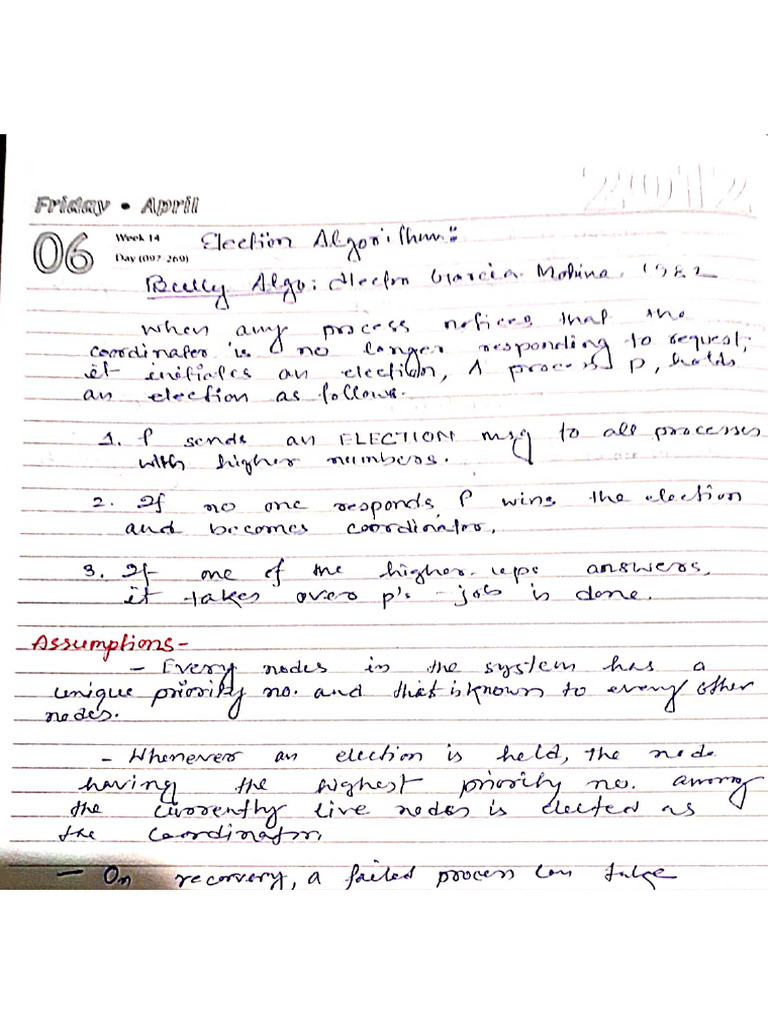 2012
Friday • April
06 Week 14 Election Algorithm:
Day (097-269)
Bully Algo: Hector Garcia-Molina, 1982
When any process notices that the
coordinator is no longer responding to request,
it initiates an election, A process P, holds
an election as follows.
1. P sends an ELECTION msg to all processes
with higher numbers.
2. If no one responds, P wins the election
and becomes coordinator.
3. If one of the higher-ups answers,
it takes over p's - job is done.
Assumptions-
- Every nodes in the system has a
unique priority no. and that is known to every other
nodes.
- Whenever an election is held, the node
having the highest priority no. among
the currently live nodes is elected as
the coordinator.
- On recovery, a failed process can take